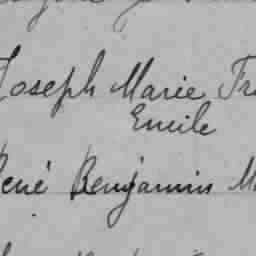 Joseph Marie Fr
Emile
René Benjamin M